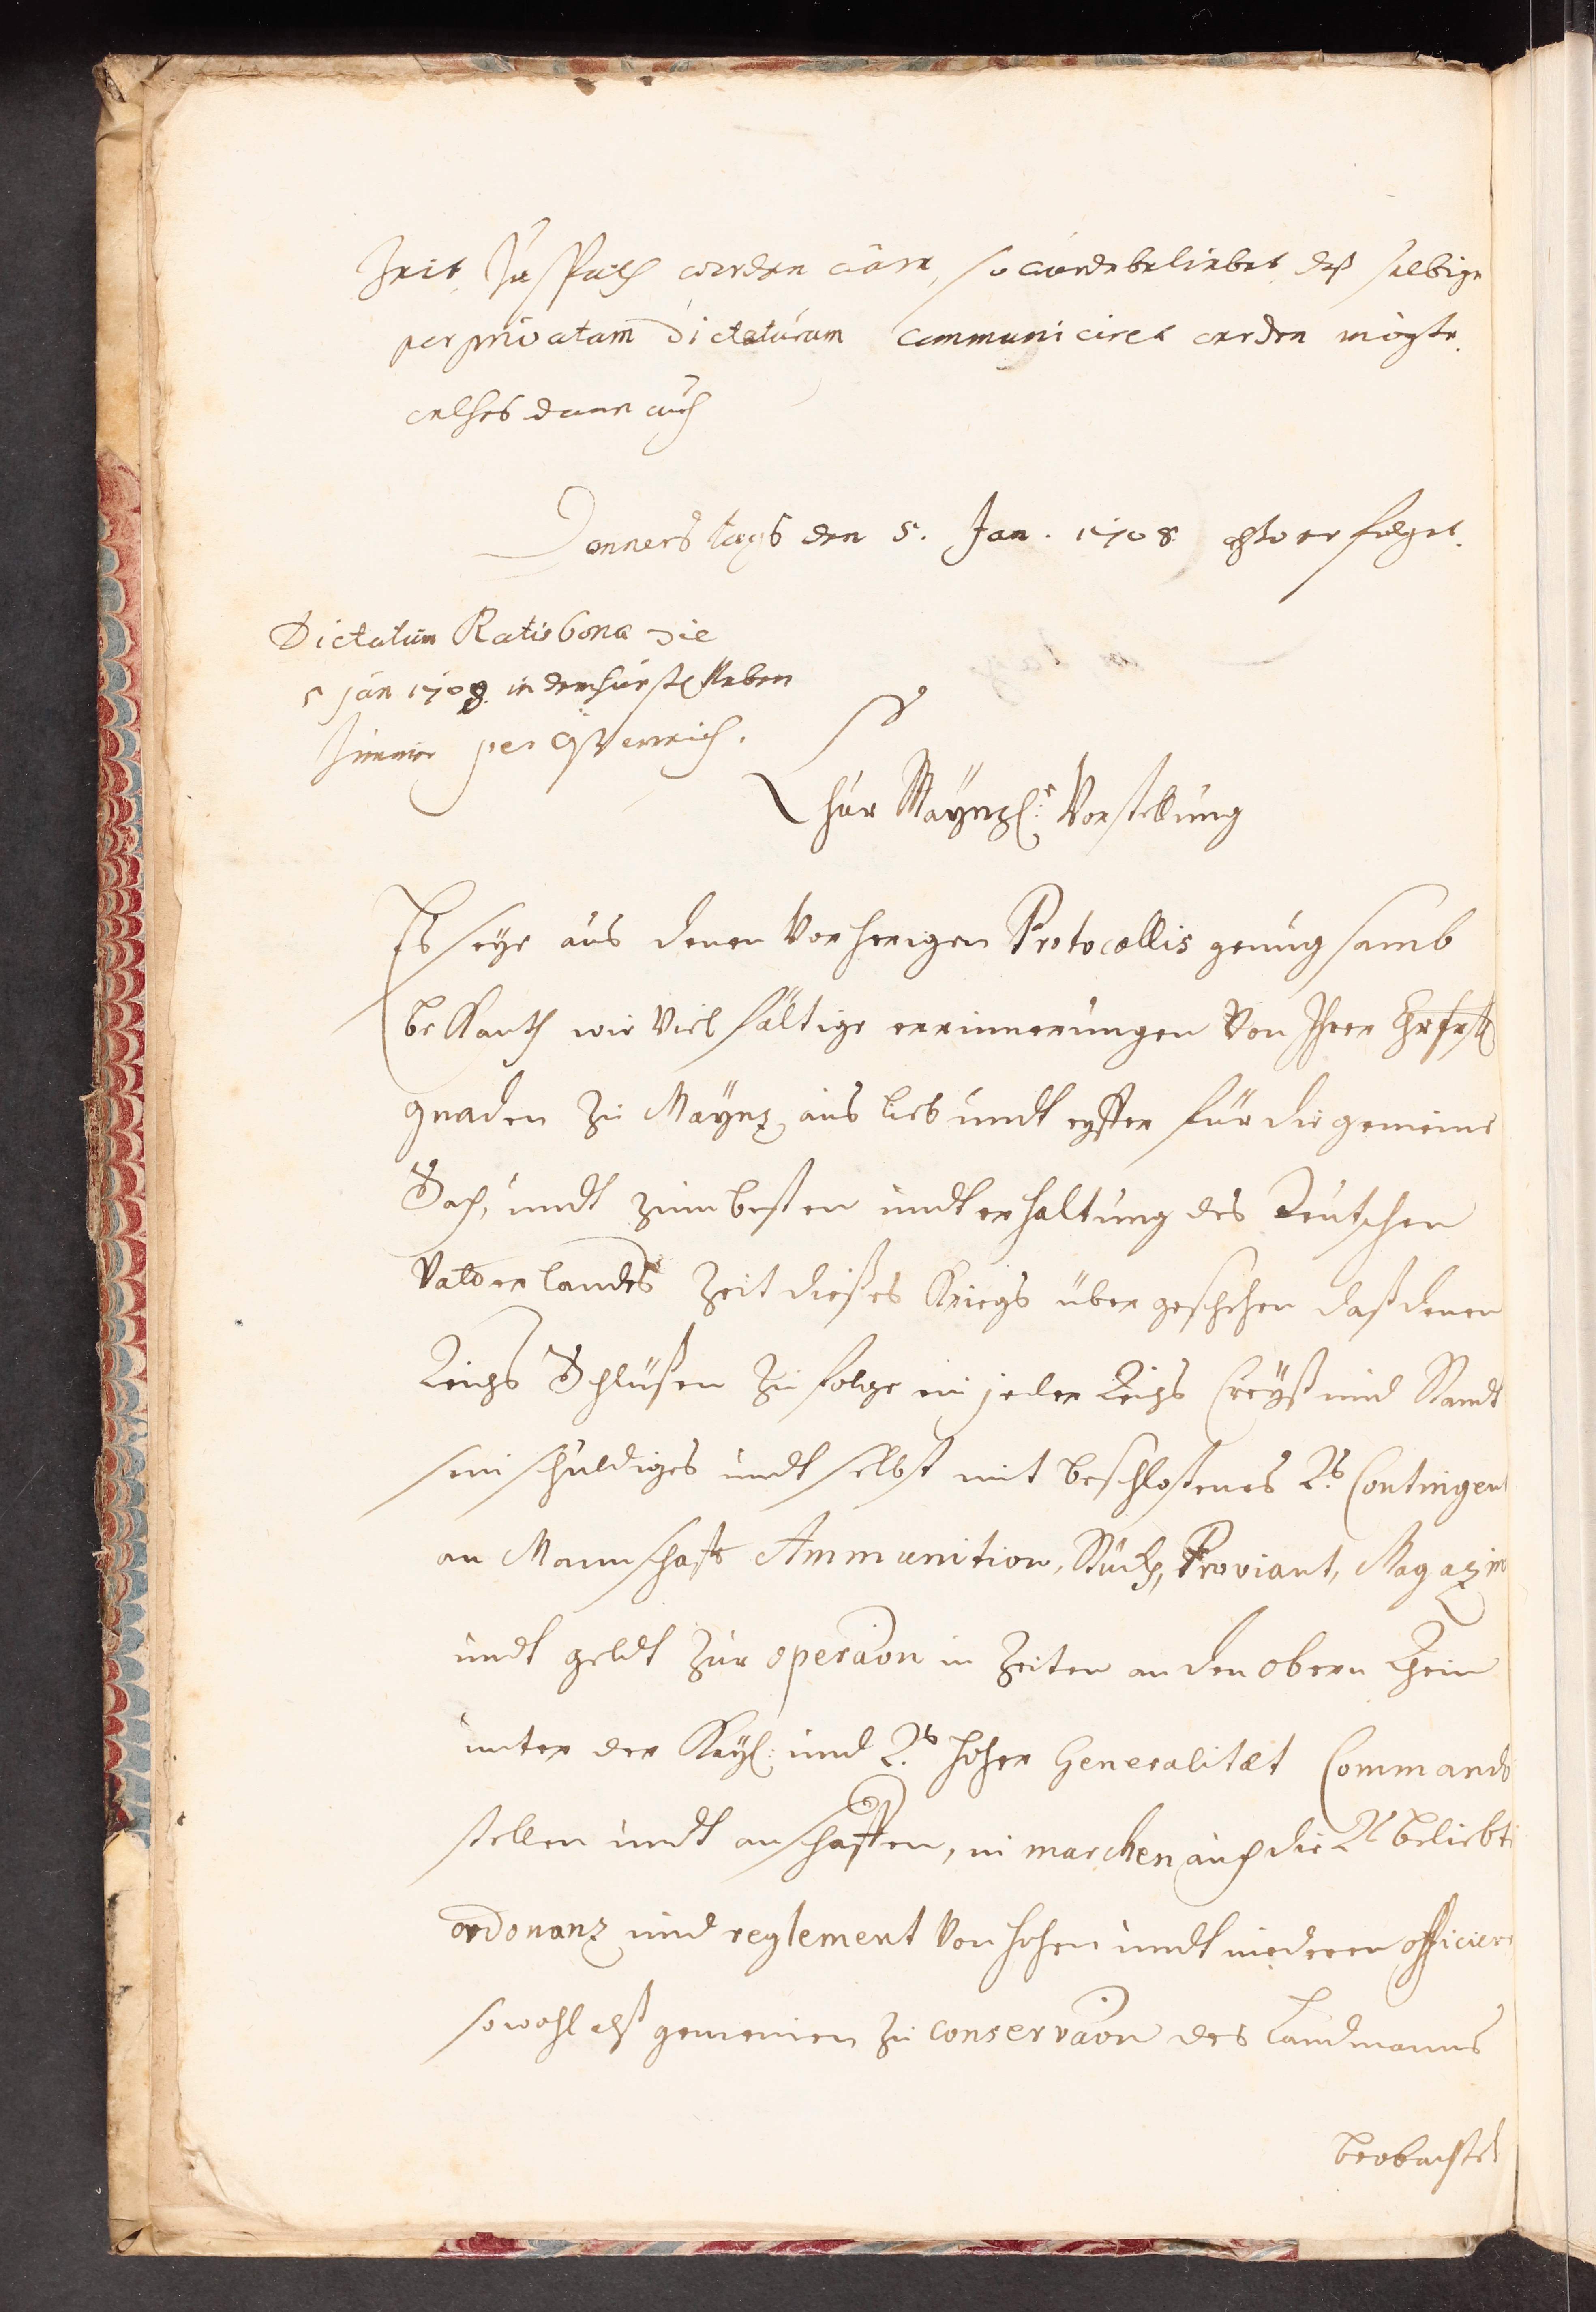 Zeit zu spath worden wäre, so wurde beliebet, daß selbige
per privatam dictaturam communiciret werden mögte.
welches dann auch
Donnerstags den 5. Jan. 1708 erfolget.
Dictatum Ratisbonæ die
5 Jan 1708. in dem fürstl. Neben
Zimmer per Österreich.
Chur Maynzl: Vorstellung
Es seye aus denen vorherigen Protocollis genugsamb
bekanth wie vielfältige errinnerungen von Ihrer Chrfrstl
gnaden zu Maynz, aus lieb undt eyffer für die gemeine
Sach, undt zum besten undt erhaltung des Teutschen
Vatterlandes Zeit dießes Kriegs über geschehen daß denen
Reichs Schlüßen zu folge ein jeder Reichs Creyß und Standt
sein schuldiges undt selbst mit beschloßenes Rs. Contingent
an Mannschafft Ammunition, Stück, Proviant, Magazin
undt geldt zur operaon in Zeiten an den obern Rhein
unter der Kayl: und Rs. hoher Generalitæt Commando
stellen undt anschaffen, in marchen auch die Rs beliebte
ordonanz und reglement von hohen undt niederen officiere
sowohl alß gemeinen zu conservaon des Landmanns
beobachtet